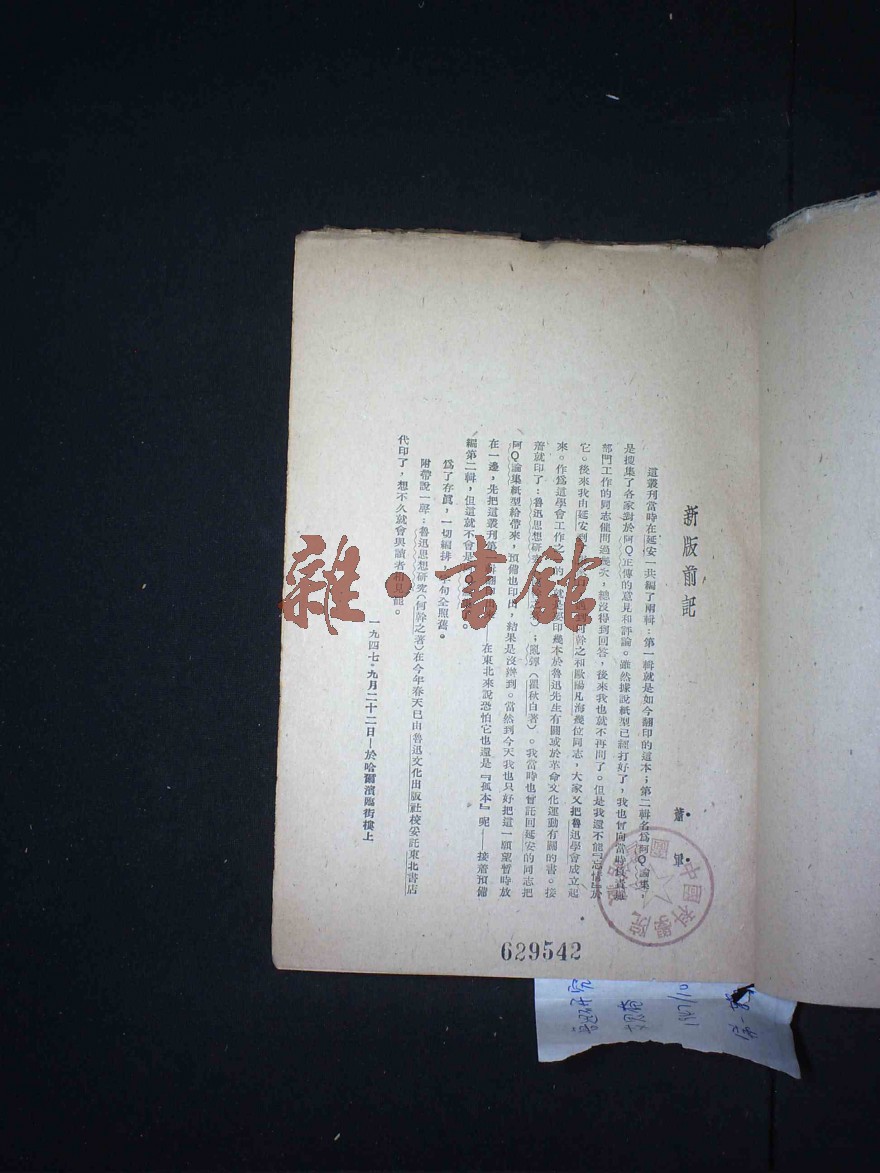 新版前記
蕭軍
這叢刊當時在延安一共編了兩輯：第一輯就是如今翻印的這本；第二輯名爲阿Q論集，
是搜集了各家對於阿Q正傳的意見和評論。雖然據說紙型已經打好了，我也曾向當時負責
部門工作的同志他問過幾次，總沒得到回答，後來我也就不再問了。但是我還不能『忘情』於
它。後來我由延安到 何幹之和歐陽凡海幾位同志，大家又把魯迅學會成立起
來。作爲這學會工作之 的 印幾本於魯迅先生有關或於革命文化運動有關的書。接
着就印了：魯迅思想研究 ；亂彈（瞿秋白著）。我當時也曾託回延安的同志把
阿Q論集紙型給帶來，預備也印出，結果是沒辦到。當然到今天我也只好把這一願望暫時放
在一邊，先把這叢刊第 在東北來說恐怕它也還是『孤本』呢——接着預備
編第二輯，但這就不會是 。
爲了存眞，一切編排， 句全照舊。
附帶說一聲：魯迅思想研究（何幹之著）在今年春天已由魯迅文化出版社校妥託東北書店
代印了，想不久就會與讀者相見罷。
一九四七·九月二十二日—於哈爾濱臨街樓上
629542
中國科學院
圖
雜·書館